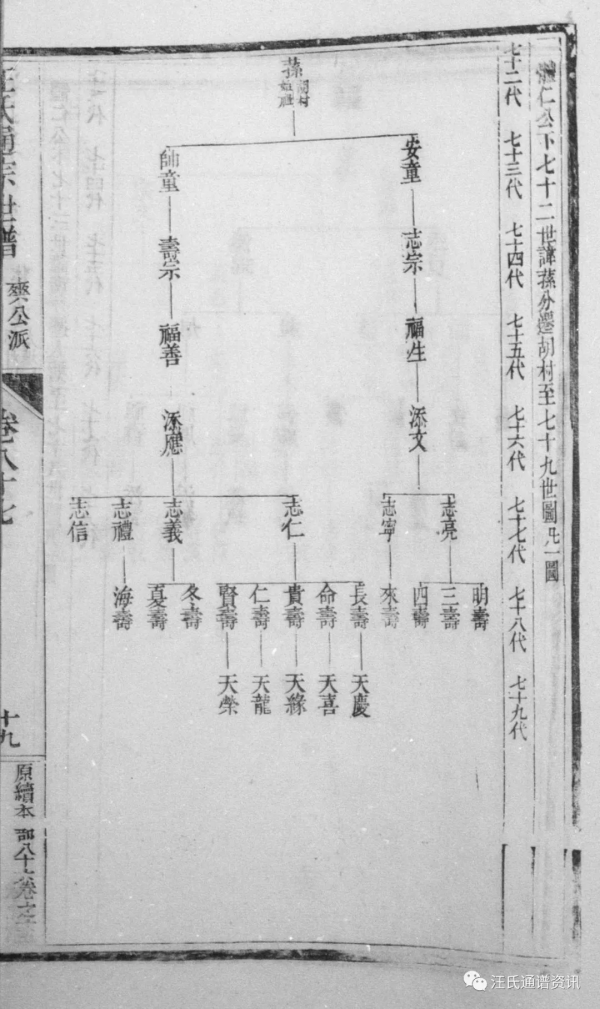 體仁公下七十二世諱蓀分遷胡村至七十九世圖凡一圖
七十二代 七十三代 七十四代 七十五代 七十六代 七十七代 七十八代 七十九代
蓀
胡村
始遷
安童 志宗 福生 添文
師童 壽宗 福善 添應
志亮
志寧
志仁
志義
志禮
志信
明壽
三壽
四壽
來壽
長壽 天慶
命壽 天喜
貴壽 天緣
仁壽 天龍
賢壽 天榮
冬壽
夏壽
海壽
汪氏通宗世譜
爽公派
卷八十七
十九
原續本
汪氏通谱资讯